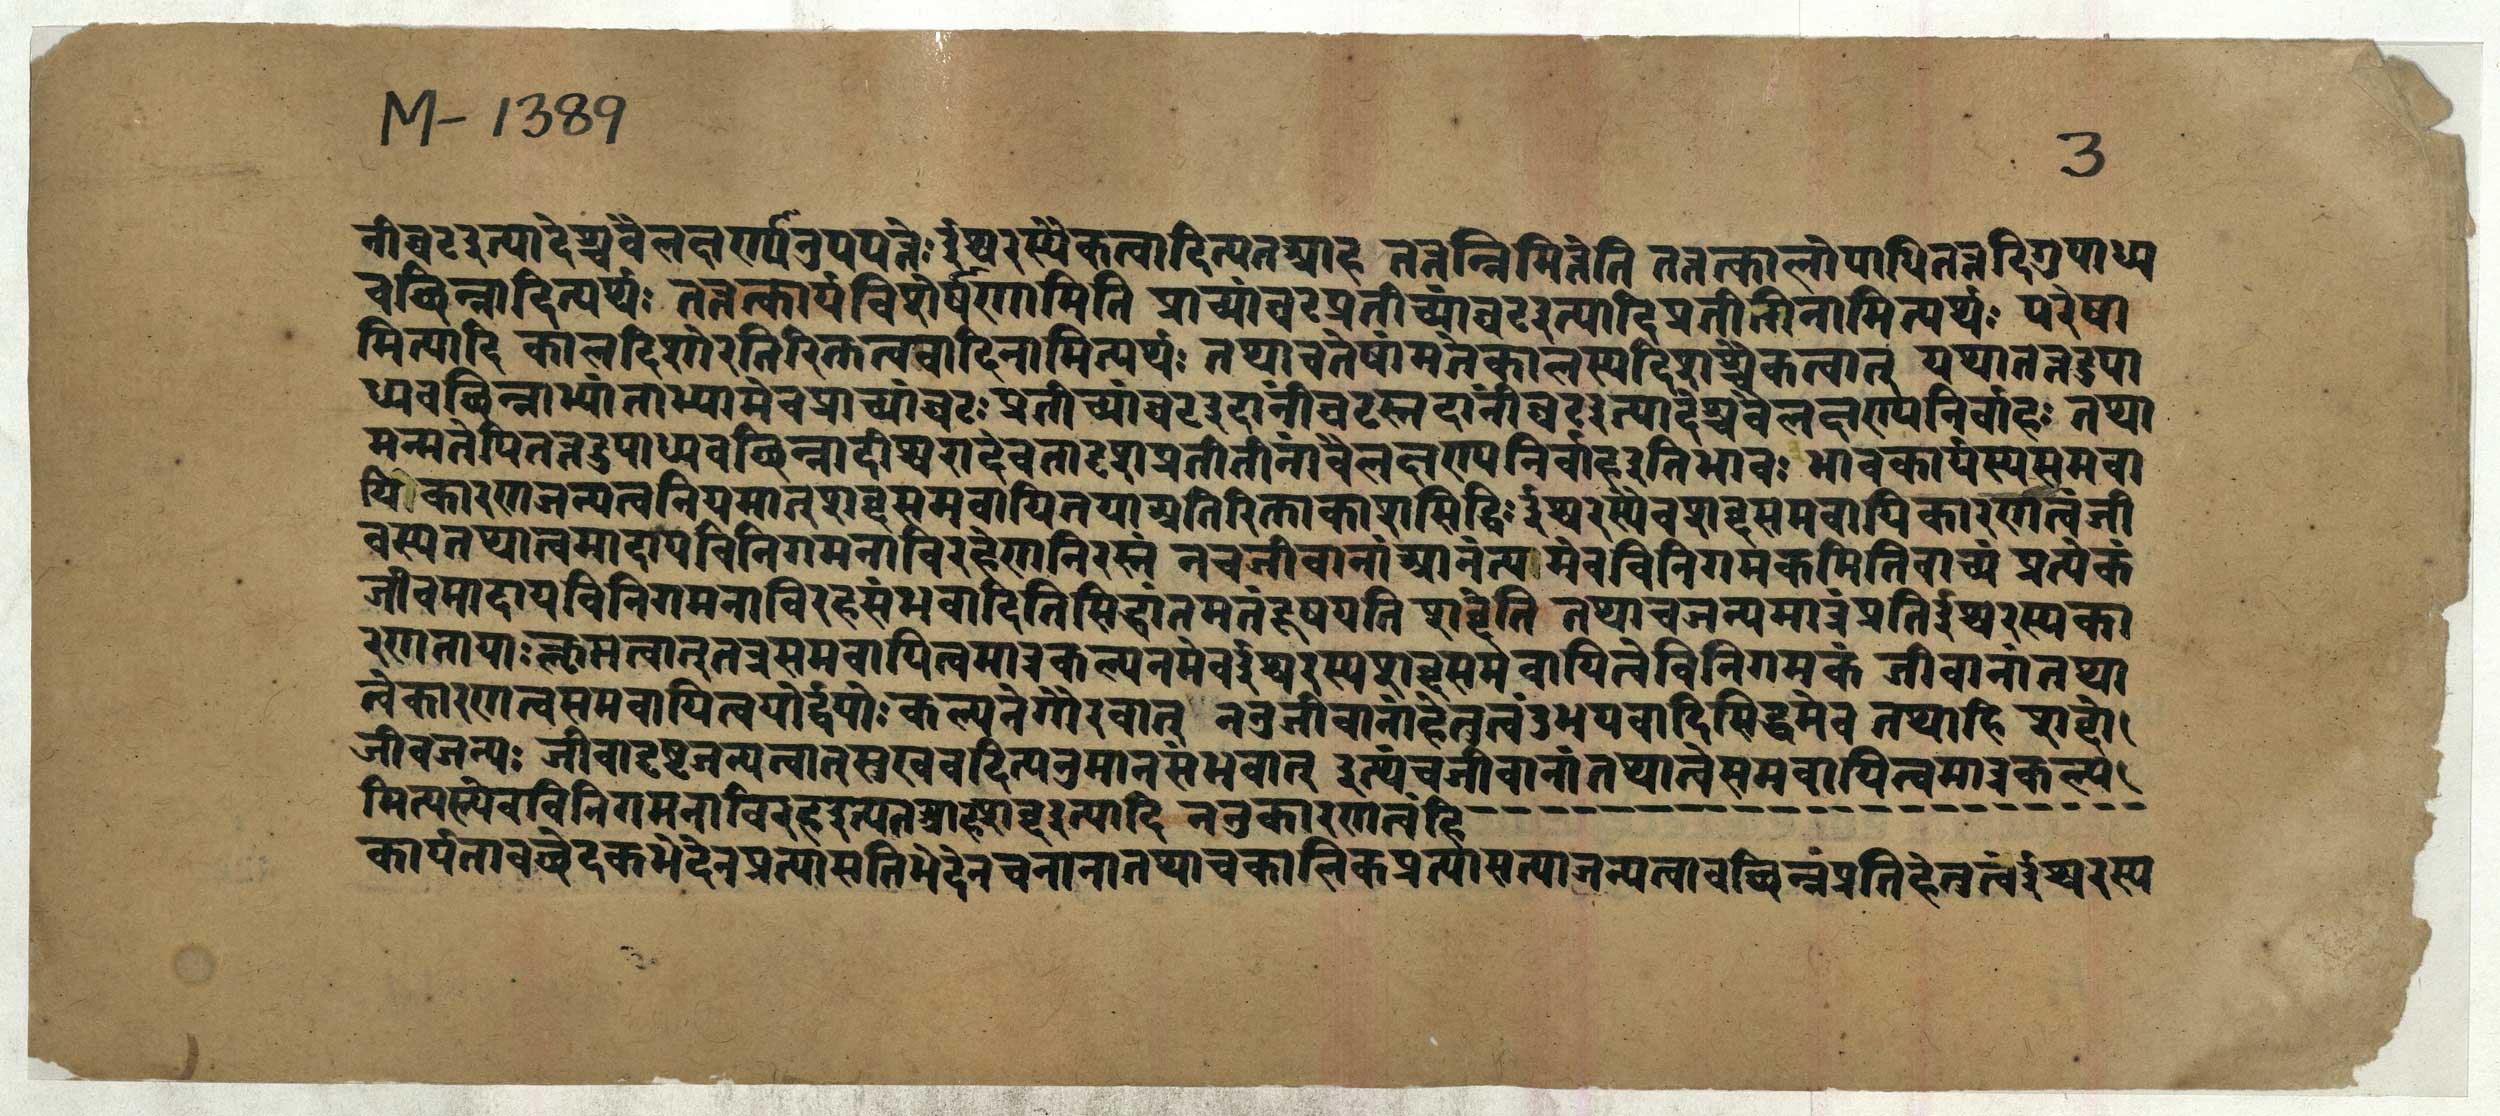 M- 1389
3
नीं घट इत्यादेश्च वैलक्षण्यानुपपत्तेः ईश्वरस्यैकत्वादित्यत आह तत्तन्निमित्तेति तत्तत्कालोपाधितत्तद्दिगुपाध्य
वछिन्नादित्यर्थः तत्तत्कार्यविशेषाणामिति प्राच्यां घट प्रतीच्यां घट इत्यादिप्रतीतीनामित्यर्थः परेषा
मित्यादि कालदिशोरतिरिक्तत्ववादिनामित्यर्थः तथा च तेषां मते कालस्य दिशश्चैकत्वात् यथा तत्तदुपा
ध्यवछिन्नाभ्यां ताभ्यामेव प्राच्यां घटः प्रतीच्यां घट इदानीं घटस्तदानीं घट इत्यादेश्च वैलक्षण्यनिर्वाहः तथा
मन्मतेपि तत्तदुपाध्यवछिन्नादीश्वरादेव तादृशप्रतीतीनां वैलक्षण्यनिर्वाह इति भावः भावकार्यस्य समवा
यिकारणजन्यत्वनियमात् शब्दसमवायितया अतिरिक्ताकाशसिद्धिः ईश्वरस्यैव शब्दसमवायिकारणत्वं जी
वस्य तथात्वमादाय विनिगमनाविरहेण निरस्तं न च जीवानां आनंत्यमेव विनिगमकमिति वाच्यं प्रत्येकं
जीवमादाय विनिगमनाविरहसंभवादिति सिद्धांतमतं दूषयति शब्देति तथा च जन्यमात्रं प्रति ईश्वरस्य का
रणतायाः कॢप्तत्वात् तत्र समवायित्वमात्रकल्पनमेव ईश्वरस्य शब्दसमवायित्वे विनिगमकं जीवानां तथा
त्वे कारणत्वसमवायित्वयोर्द्वयोः कल्पने गौरवात् ननु जीवानां हेतुत्वं उभयवादिसिद्धमेव तथाहि शब्दो
जीवजन्यः जीवादृष्टजन्यत्वात् सुखवदित्यनुमानसंभवात् इत्थं च जीवानां तथात्वे समवायित्वमात्रकल्प्य
मित्यस्त्येव विनिगमनाविरह इत्यत आह शब्द इत्यादि ननु कारणत्वं हि
कार्यतावछेदकभेदेन प्रत्यासत्तिभेदेन च नाना तथा च कालिकप्रत्यासत्त्या जन्यत्वावछिन्नं प्रति हेतुत्वं ईश्वरस्य